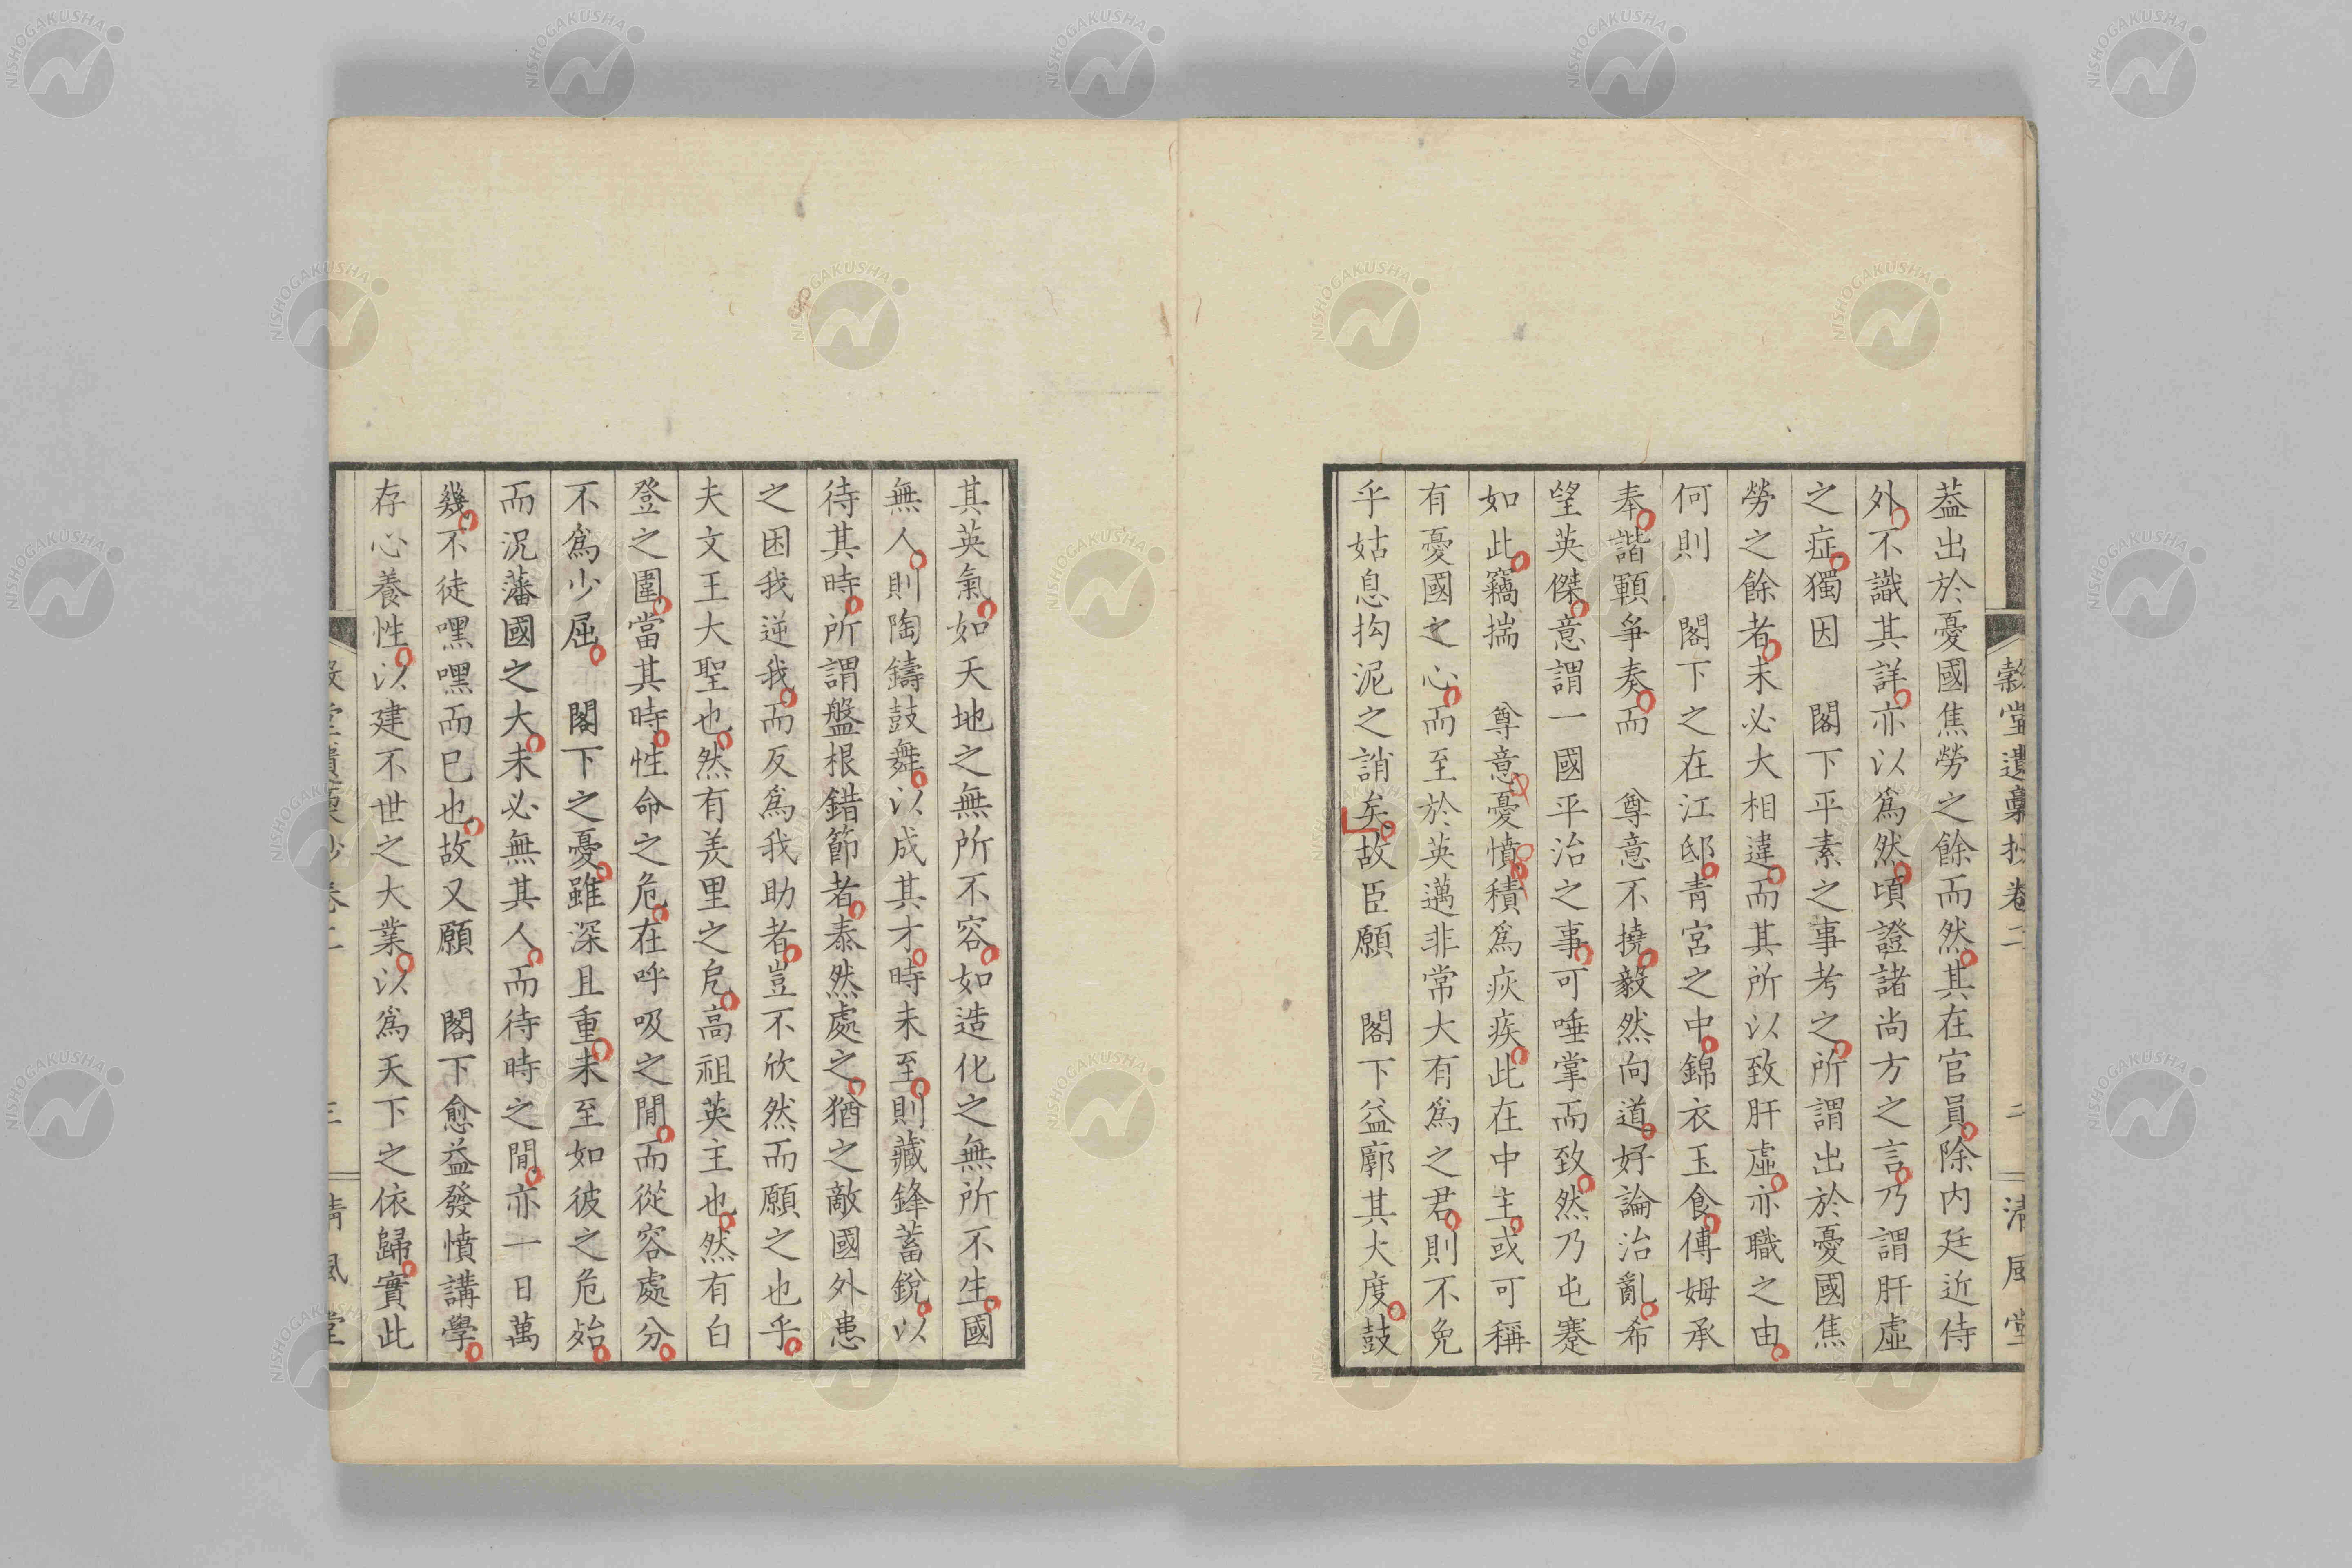 葢出於憂國焦勞之餘而然其在官員除内廷近侍
外不識其詳亦以爲然頃證諸尚方之言乃謂肝虛
之症獨因　閣下平素之事考之所謂出於憂國焦
勞之餘者未必大相違而其所以致肝虛亦職之由
何則　閣下之在江邸青宮之中錦衣玉食傅姆承
奉諧顰爭奏而　尊意不撓毅然向道好論治亂希
望英傑意謂一國平治之事可唾掌而致然乃屯蹇
如此竊揣　尊意憂憤積爲疢疾此在中主或可稱
有憂國之心而至於英邁非常大有爲之君則不免
乎姑息拘泥之誚矣故臣願　閣下益廓其大度鼓
穀堂遺稾抄卷二　二　清風堂
其英氣如天地之無所不容如造化之無所不生國
無人則陶鑄鼓舞以成其才時未至則藏鋒蓄銳以
待其時所謂盤根錯節者泰然處之猶之敵國外患
之困我逆我而反爲我助者豈不欣然而願之也乎
夫文王大聖也然有羑里之戹高祖英主也然有白
登之圍當其時性命之危在呼吸之閒而從容處分
不爲少屈　閣下之憂雖深且重未至如彼之危殆
而況藩國之大未必無其人而待時之閒亦一日萬
幾不徒嘿嘿而已也故又願　閣下愈益發憤講學
存心養性以建不世之大業以爲天下之依歸實此
NISHOGAKUSHA